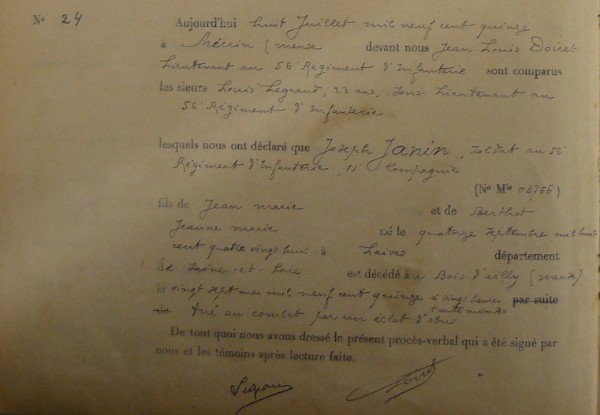 No 24
Aujourd'hui huit Juillet mil neuf cent quinze
à Mécrin (meuse devant nous Jean Louis Doiret
Lieutenant au 56e Régiment d'Infanterie sont comparus
les sieurs Louis Legrand, 23 ans, Sous-Lieutenant au
56e Régiment d'Infanterie
lesquels nous ont déclaré que Joseph Janin, soldat au 56e
Régiment d'Infanterie, 11e Compagnie
(No Mle 03766)
fils de Jean marie et de Berthot
Jeanne marie né le quatorze septembre mil huit
cent quatre vingt huit à Laives département
de Saône-et-Loire est décédé au Bois d'ailly (meuse)
le vingt sept mai mil neuf cent quinze à vingt heures par suite
trente minutes
de tué au combat par un éclat d'obus
De tout quoi nous avons dressé le présent procès-verbal qui a été signé par
nous et les témoins après lecture faite.
Legrand Doiret